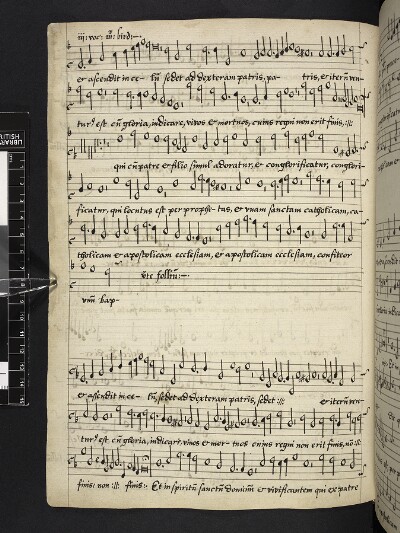 iij: voc: m: bird:
et ascendit in ce- lū sedet ad dexteram patris, pa- tris, et iterū ven-
tur9 est cū gloria, iudicare, vivos et mortuos, cuius regni non erit finis, :||:
qui cū patre et filio simul adoratur, et conglorificatur, conglori-
ficatur, qui locutus est per prophe- tas, et vnam sanctam catholicam, ca-
tholicam et apostolicam ecclesiam, et apostolicam ecclesiam, confiteor
vnū bap-
et ascendit in ce- lū sedet ad dexteram patris, sedet :||: et iterū ven-
tur9 est cū gloria, iudicare vivos et mor- tuos cuius regni non erit finis, nō :||:
finis: non :||: finis: Et in spiritū sanctū dominū et vivificantem qui ex patre
BRITISH
LIBRARY